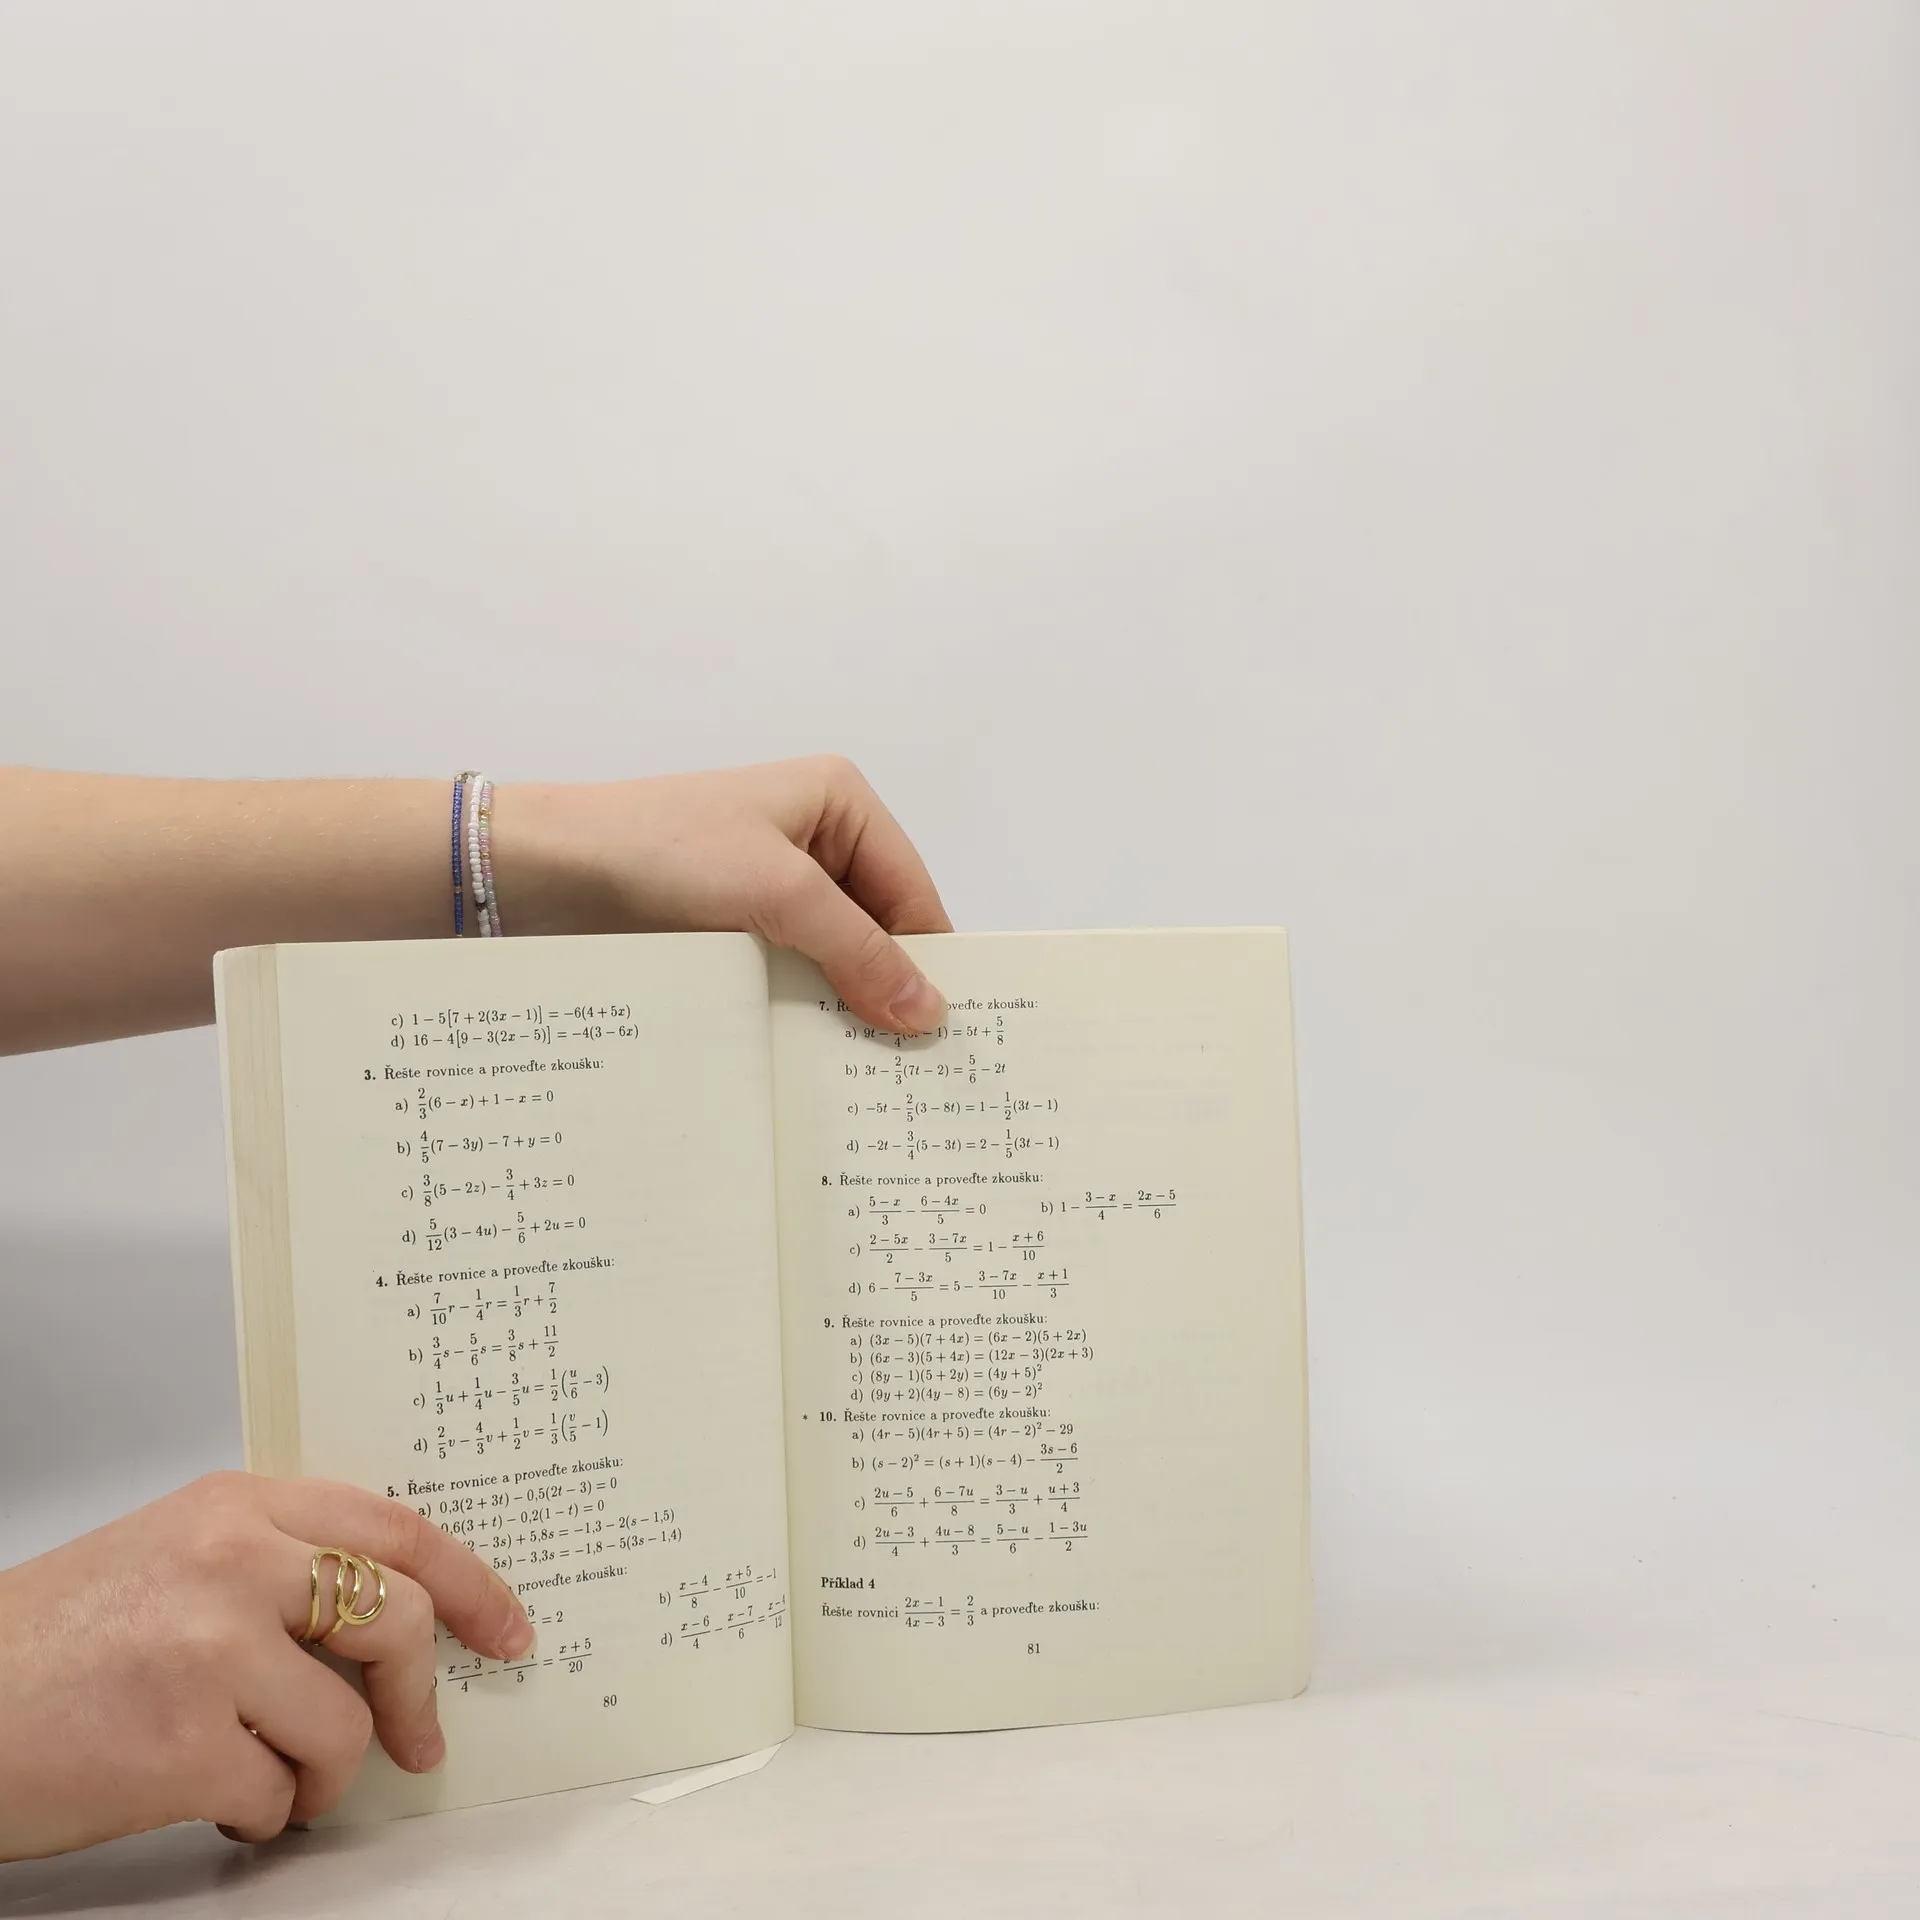 c) 1 − 5[7 + 2(3x − 1)] = −6(4 + 5x)
d) 16 − 4[9 − 3(2x − 5)] = −4(3 − 6x)
3. Řešte rovnice a proveďte zkoušku:
a) 2/3(6 − x) + 1 − x = 0
b) 4/5(7 − 3y) − 7 + y = 0
c) 3/8(5 − 2z) − 3/4 + 3z = 0
d) 5/12(3 − 4u) − 5/6 + 2u = 0
4. Řešte rovnice a proveďte zkoušku:
a) 7/10r − 1/4r = 1/3r + 7/2
b) 3/4s − 5/6s = 3/8s + 11/2
c) 1/3u + 1/4u − 3/5u = 1/2(u/6 − 3)
d) 2/5v − 4/3v + 1/2v = 1/3(v/5 − 1)
5. Řešte rovnice a proveďte zkoušku:
a) 0,3(2 + 3t) − 0,5(2t − 3) = 0
0,6(3 + t) − 0,2(1 − t) = 0
(2 − 3s) + 5,8s = −1,3 − 2(s − 1,5)
5s) − 3,3s = −1,8 − 5(3s − 1,4)
proveďte zkoušku:
= 2 b) (x − 4)/8 − (x + 5)/10 = −1
(x − 3)/4 − /5 = (x + 5)/20 d) (x − 6)/4 − (x − 7)/6 = /12
80
7. proveďte zkoušku:
a) 9t − 1) = 5t + 5/8
b) 3t − 2/3(7t − 2) = 5/6 − 2t
c) −5t − 2/5(3 − 8t) = 1 − 1/2(3t − 1)
d) −2t − 3/4(5 − 3t) = 2 − 1/5(3t − 1)
8. Řešte rovnice a proveďte zkoušku:
a) (5 − x)/3 − (6 − 4x)/5 = 0 b) 1 − (3 − x)/4 = (2x − 5)/6
c) (2 − 5x)/2 − (3 − 7x)/5 = 1 − (x + 6)/10
d) 6 − (7 − 3x)/5 = 5 − (3 − 7x)/10 − (x + 1)/3
9. Řešte rovnice a proveďte zkoušku:
a) (3x − 5)(7 + 4x) = (6x − 2)(5 + 2x)
b) (6x − 3)(5 + 4x) = (12x − 3)(2x + 3)
c) (8y − 1)(5 + 2y) = (4y + 5)²
d) (9y + 2)(4y − 8) = (6y − 2)²
* 10. Řešte rovnice a proveďte zkoušku:
a) (4r − 5)(4r + 5) = (4r − 2)² − 29
b) (s − 2)² = (s + 1)(s − 4) − (3s − 6)/2
c) (2u − 5)/6 + (6 − 7u)/8 = (3 − u)/3 + (u + 3)/4
d) (2u − 3)/4 + (4u − 8)/3 = (5 − u)/6 − (1 − 3u)/2
Příklad 4
Řešte rovnici (2x − 1)/(4x − 3) = 2/3 a proveďte zkoušku:
81